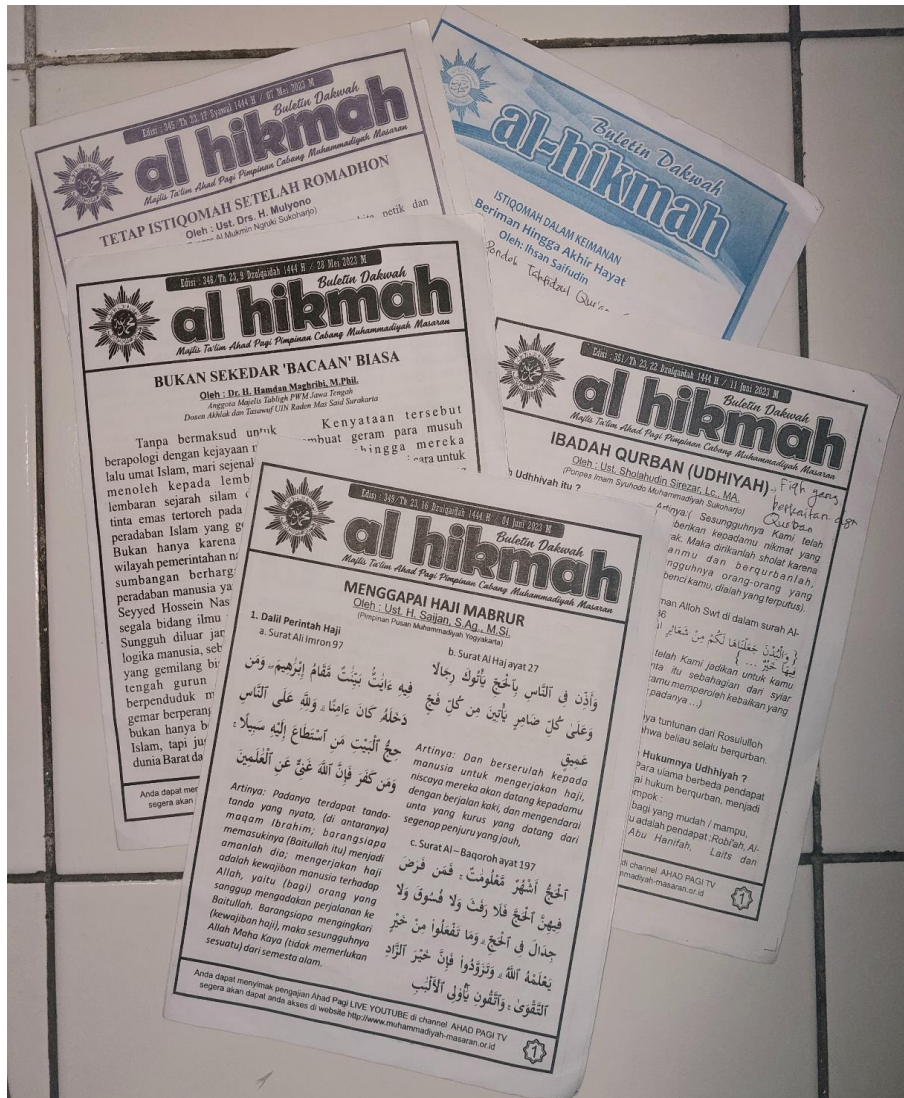 Edisi : 345/Th 23, 17 Syawal 1444 H / 07 Mei 2023 M
Buletin Dakwah
al hikmah
Majlis Ta'lim Ahad Pagi Pimpinan Cabang Muhammadiyah Masaran
TETAP ISTIQOMAH SETELAH ROMADHON
Oleh : Ust. Drs. H. Mulyono
Al Mukmin Ngruki Sukoharjo)
petik dan
Buletin Dakwah
al-hikmah
ISTIQOMAH DALAM KEIMANAN
Beriman Hingga Akhir Hayat
Oleh: Ihsan Saifudin
Pondok Tahfidzul Qur'an
Edisi : 348/Th 23, 9 Dzulqaidah 1444 H / 28 Mei 2023 M
Buletin Dakwah
al hikmah
Majlis Ta'lim Ahad Pagi Pimpinan Cabang Muhammadiyah Masaran
BUKAN SEKEDAR 'BACAAN' BIASA
Oleh : Dr. H. Hamdan Maghribi, M.Phil.
Anggota Majelis Tabligh PWM Jawa Tengah
Dosen Akhlak dan Tasawuf UIN Raden Mas Said Surakarta
Tanpa bermaksud untuk
berapologi dengan kejayaan
lalu umat Islam, mari sejenak
menoleh kepada
lembaran sejarah silam
tinta emas tertoreh pada
peradaban Islam yang
Bukan hanya karena
wilayah pemerintahan
sumbangan
peradaban manusia
Seyyed Hossein
segala bidang ilmu
Sungguh diluar
logika manusia,
yang gemilang
tengah gurun
berpenduduk
gemar
bukan hanya
Islam, tapi
dunia Barat
Kenyataan tersebut
geram para musuh
mereka
cara untuk
Anda dapat
segera akan
Edisi : 351/Th 23, 22 Dzulqaidah 1444 H / 11 Juni 2023 M
Buletin Dakwah
al hikmah
Majlis Ta'lim Ahad Pagi Pimpinan Cabang Muhammadiyah Masaran
IBADAH QURBAN (UDHIYAH)
Oleh : Ust. Sholahudin Sirezar, Lc., MA.
(Ponpes Imam Syuhodo Muhammadiyah Sukoharjo)
Fiqh yang
berkaitan dgn
Qurban
Udhhiyah itu ?
Artinya:( Sesungguhnya Kami telah
berikan kepadamu nikmat yang
Maka dirikanlah sholat karena
dan berqurbanlah,
orang-orang yang
benci kamu, dialah yang terputus).
Alloh Swt di dalam surah Al-
telah Kami jadikan untuk kamu
itu sebahagian dari syiar
kamu memperoleh kebaikan yang
padanya ...)
tuntunan dari Rosululloh
beliau selalu berqurban.
Hukumnya Udhhiyah ?
Para ulama berbeda pendapat
hukum berqurban, menjadi
bagi yang mudah / mampu,
adalah pendapat :Robi'ah, Al-
Abu Hanifah, Laits dan
di channel AHAD PAGI TV
1
Edisi : 349/Th 23, 16 Dzulqaidah 1444 H / 04 Juni 2023 M
Buletin Dakwah
al hikmah
Majlis Ta'lim Ahad Pagi Pimpinan Cabang Muhammadiyah Masaran
MENGGAPAI HAJI MABRUR
Oleh : Ust. H. Saijan, S.Ag., M.Si.
(Pimpinan Pusan Muhammadiyah Yogyakarta)
1. Dalil Perintah Haji
a. Surat Ali Imron 97
فِيهِ ءَايَٰتٌۢ بَيِّنَٰتٌ مَّقَامُ إِبْرَٰهِيمَ ۖ وَمَن
دَخَلَهُۥ كَانَ ءَامِنًا ۗ وَلِلَّهِ عَلَى ٱلنَّاسِ
حِجُّ ٱلْبَيْتِ مَنِ ٱسْتَطَاعَ إِلَيْهِ سَبِيلًا ۚ
وَمَن كَفَرَ فَإِنَّ ٱللَّهَ غَنِىٌّ عَنِ ٱلْعَٰلَمِينَ
Artinya: Padanya terdapat tanda-
tanda yang nyata, (di antaranya)
maqam Ibrahim; barangsiapa
memasukinya (Baitullah itu) menjadi
amanlah dia; mengerjakan haji
adalah kewajiban manusia terhadap
Allah, yaitu (bagi) orang yang
sanggup mengadakan perjalanan ke
Baitullah. Barangsiapa mengingkari
(kewajiban haji), maka sesungguhnya
Allah Maha Kaya (tidak memerlukan
sesuatu) dari semesta alam.
b. Surat Al Haj ayat 27
وَأَذِّن فِى ٱلنَّاسِ بِٱلْحَجِّ يَأْتُوكَ رِجَالًا
وَعَلَىٰ كُلِّ ضَامِرٍ يَأْتِينَ مِن كُلِّ فَجٍّ
عَمِيقٍ
Artinya: Dan berserulah kepada
manusia untuk mengerjakan haji,
niscaya mereka akan datang kepadamu
dengan berjalan kaki, dan mengendarai
unta yang kurus yang datang dari
segenap penjuru yang jauh,
c. Surat Al – Baqoroh ayat 197
ٱلْحَجُّ أَشْهُرٌ مَّعْلُومَٰتٌ ۚ فَمَن فَرَضَ
فِيهِنَّ ٱلْحَجَّ فَلَا رَفَثَ وَلَا فُسُوقَ وَلَا
جِدَالَ فِى ٱلْحَجِّ ۗ وَمَا تَفْعَلُوا۟ مِنْ خَيْرٍ
يَعْلَمْهُ ٱللَّهُ ۗ وَتَزَوَّدُوا۟ فَإِنَّ خَيْرَ ٱلزَّادِ
ٱلتَّقْوَىٰ ۚ وَٱتَّقُونِ يَٰٓأُو۟لِى ٱلْأَلْبَٰبِ
Anda dapat menyimak pengajian Ahad Pagi LIVE YOUTUBE di channel AHAD PAGI TV
segera akan dapat anda akses di website http://www.muhammadiyah-masaran.or.id
1